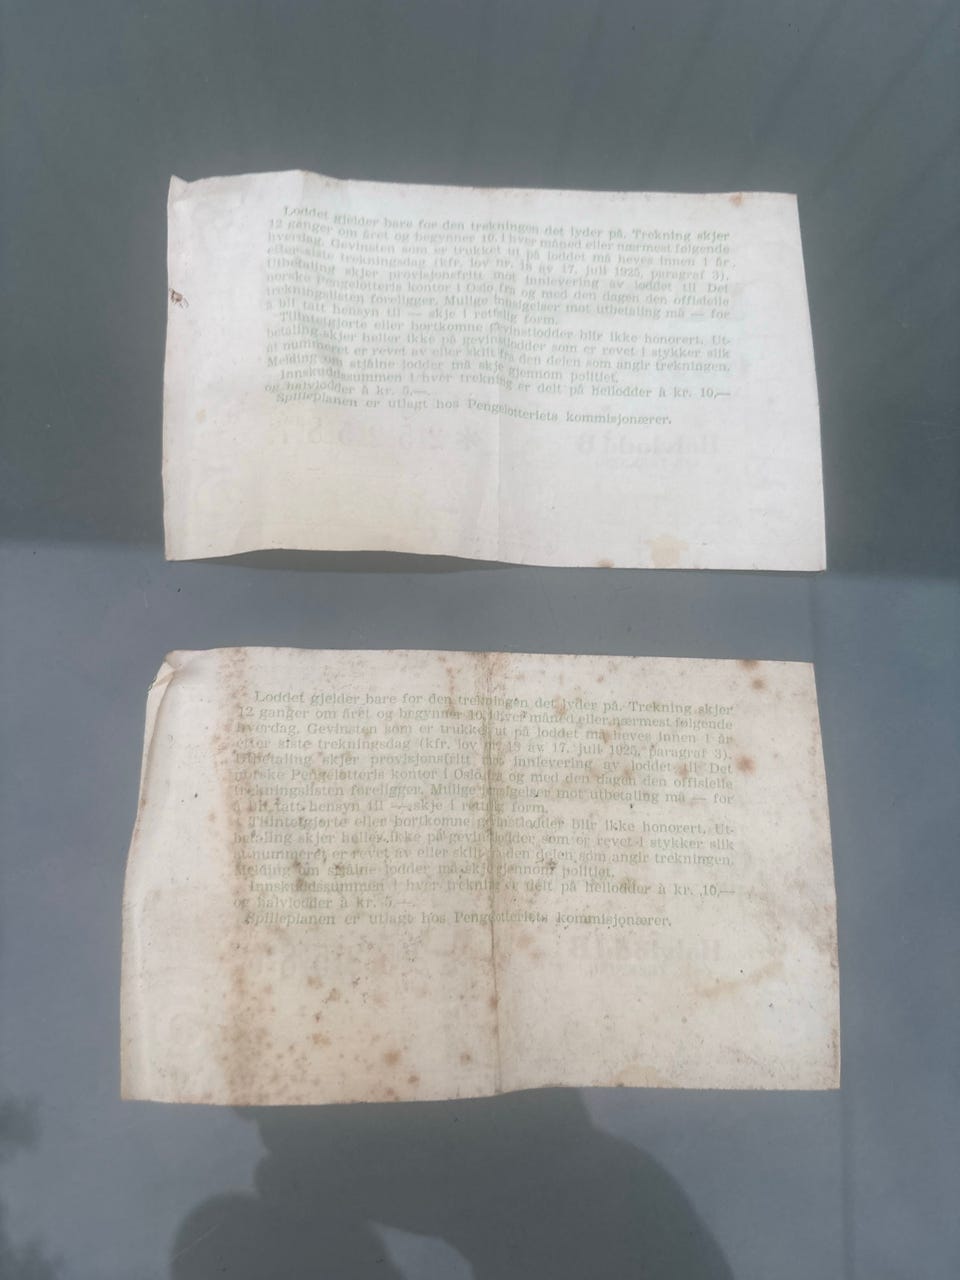 Loddet gjelder bare for den trekningen det lyder på. Trekning skjer
12 ganger om året og begynner 10. i hver måned eller nærmest følgende
hverdag. Gevinsten som er trukket ut på loddet må heves innen 1 år
etter siste trekningsdag (kfr. lov nr. 19 av 17. juli 1925, paragraf 3).
Utbetaling skjer provisjonsfritt mot innlevering av loddet til Det
norske Pengelotteris kontor i Oslo fra og med den dagen den offisielle
trekningslisten foreligger. Mulige innsigelser mot utbetaling må — for
å bli tatt hensyn til — skje i rettslig form.
Tilintetgjorte eller bortkomne gevinstlodder blir ikke honorert. Ut-
betaling skjer heller ikke på gevinstlodder som er revet i stykker slik
at nummeret er revet av eller skilt fra den delen som angir trekningen.
Melding om stjålne lodder må skje gjennom politiet.
Innskuddssummen i hver trekning er delt på hellodder à kr. 10,—
og halvlodder à kr. 5,—.
Spilleplanen er utlagt hos Pengelotteriets kommisjonærer.
Halvlodd B
Loddet gjelder bare for den trekningen det lyder på. Trekning skjer
12 ganger om året og begynner 10. i hver måned eller nærmest følgende
hverdag. Gevinsten som er trukket ut på loddet må heves innen 1 år
etter siste trekningsdag (kfr. lov nr. 19 av 17. juli 1925, paragraf 3).
Utbetaling skjer provisjonsfritt mot innlevering av loddet til Det
norske Pengelotteris kontor i Oslo fra og med den dagen den offisielle
trekningslisten foreligger. Mulige innsigelser mot utbetaling må — for
å bli tatt hensyn til — skje i rettslig form.
Tilintetgjorte eller bortkomne gevinstlodder blir ikke honorert. Ut-
betaling skjer heller ikke på gevinstlodder som er revet i stykker slik
at nummeret er revet av eller skilt fra den delen som angir trekningen.
Melding om stjålne lodder må skje gjennom politiet.
Innskuddssummen i hver trekning er delt på hellodder à kr. 10,—
og halvlodder à kr. 5,—.
Spilleplanen er utlagt hos Pengelotteriets kommisjonærer.
Halvlodd B